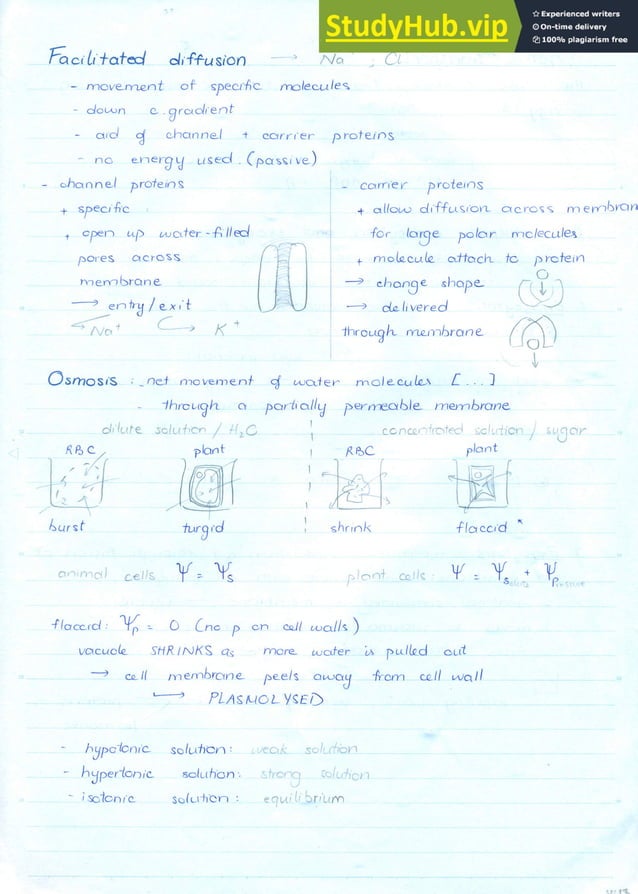 StudyHub.vip
Experienced writers
On-time delivery
100% plagiarism free
Facilitated diffusion → Na ; Cl
- movement of specific molecules
- down c. gradient
- aid of channel + carrier proteins
- no energy used. (passive)
- channel proteins
+ specific
+ open up water-filled
pores across
membrane
→ entry/exit
Na⁺ K⁺
- carrier proteins
+ allow diffusion across membran
for large polar molecules
+ molecule attach to protein
→ change shape
→ delivered
through membrane
Osmosis : - net movement of water molecules [...]
- through a partially permeable membrane
dilute solution / H₂O
concentrated solution / sugar
RBC plant RBC plant
burst turgid shrink flaccid *
animal cells Ψ = Ψs
plant cells: Ψ = Ψsolute + Ψpressure
flaccid: Ψp = 0 (no p on cell walls)
vacuole SHRINKS as more water is pulled out
→ cell membrane peels away from cell wall
↳ PLASMOLYSED
- hypotonic solution: weak solution
- hypertonic solution: strong solution
- isotonic solution : equilibrium